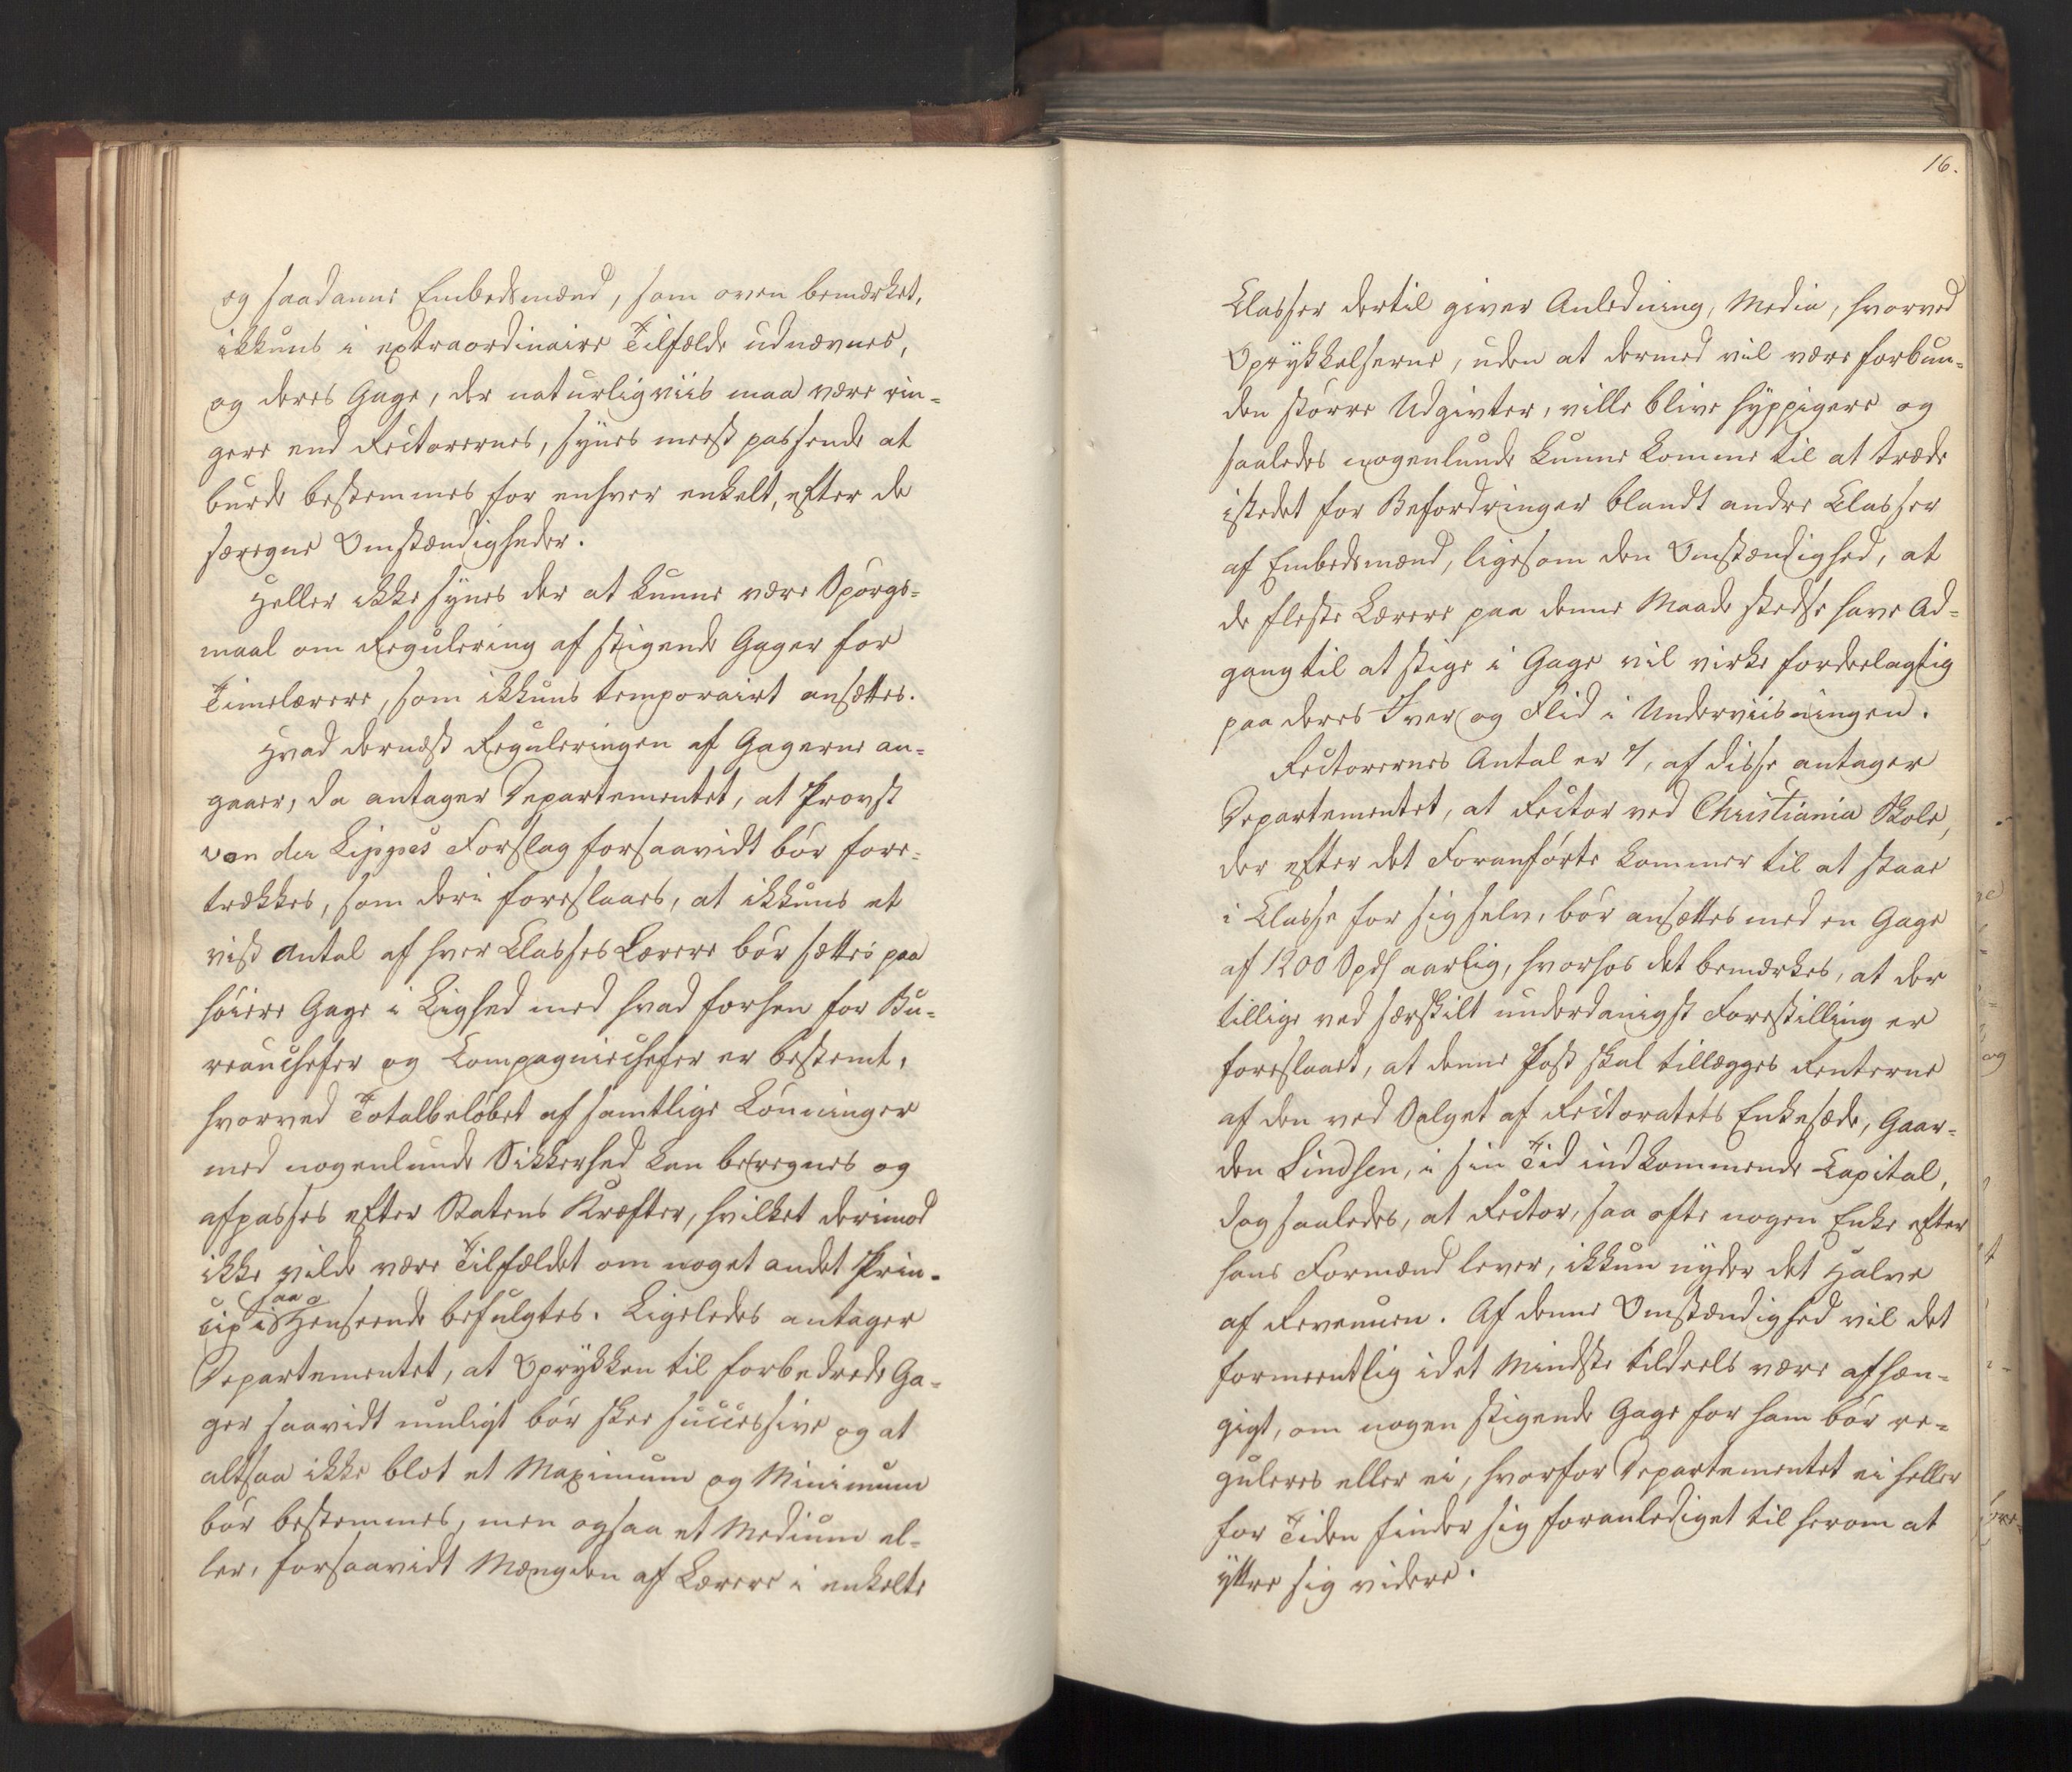 og saadanne Embedsmænd, som oven bemærket,
ikkuns i extraordinaire Tilfælde udnævnes,
og deres Gage, der naturligviis maa være rin-
gere end Rectorernes, synes meest passende at
burde bestemmes for enhver enkelt, efter de
særegne Omstændigheder.
Heller ikke synes der at kunne være Spørgs-
maal om Regulering af stigende Gager for
Timelærere, som ikkuns temporairt ansættes.
Hvad dernæst Reguleringen af Gagerne an-
gaaer, da antager Departementet, at Provst
von der Lippes Forslag forsaavidt bør fore-
trækkes, som deri foreslaaes, at ikkuns et
vist Antal af hver Classes Lærere bør sættes paa
høiere Gage i Lighed med hvad forhen for Bu-
reauchefer og Compagniechefer er bestemt,
hvorved Totalbeløbet af samtlige Lønninger
med nogenlunde Sikkerhed kan beregnes og
afpasses efter Statens Kræfter, hvilket derimod
ikke vilde være Tilfældet om noget andet Prin-
cip i saa Henseende befulgtes. Ligeledes antager
Departementet, at Oprykken til forbedrede Ga-
ger saavidt muligt bør skee successive og at
altsaa ikke blot et Maximum og Minimum
bør bestemmes, men ogsaa et Medium el-
ler, forsaavidt Mængden af Lærere i enkelte
16.
Classer dertil giver Anledning, Media, hvorved
Oprykkelserne, uden at dermed vil være forbun-
den større Udgivter, ville blive hyppigere og
saaledes nogenlunde kunne komme til at træde
istedet for Befordringer blandt andre Classer
af Embedsmænd, ligesom den Omstændighed, at
de fleste Lærere paa denne Maade stedse have Ad-
gang til at stige i Gage vil virke fordeelagtig
paa deres Iver og Flid i Underviisningen.
Rectorernes Antal er 7, af disse antager
Departementet, at Rector ved Christiania Skole,
der efter det Foranførte kommer til at staae
i Classe for sig selv, bør ansættes med en Gage
af 1200 Spds aarlig, hvorhos det bemærkes, at der
tillige ved særskilt underdanigst Forestilling er
foreslaaet, at denne Post skal tillægges Renterne
af den ved Salget af Rectoratets Enkesæde, Gaar-
den Lindsen, i sin Tid indkommende Capital,
dog saaledes, at Rector, saa ofte nogen Enke efter
hans Formænd lever, ikkun nyder det Halve
af Revenuen. Af denne Omstændighed vil det
formeentlig idet Mindste tildeels være afhæn-
gigt, om nogen stigende Gage for ham bør re-
guleres eller ei, hvorfor Departementet ei heller
for Tiden finder sig foranlediget til herom at
yttre sig videre.